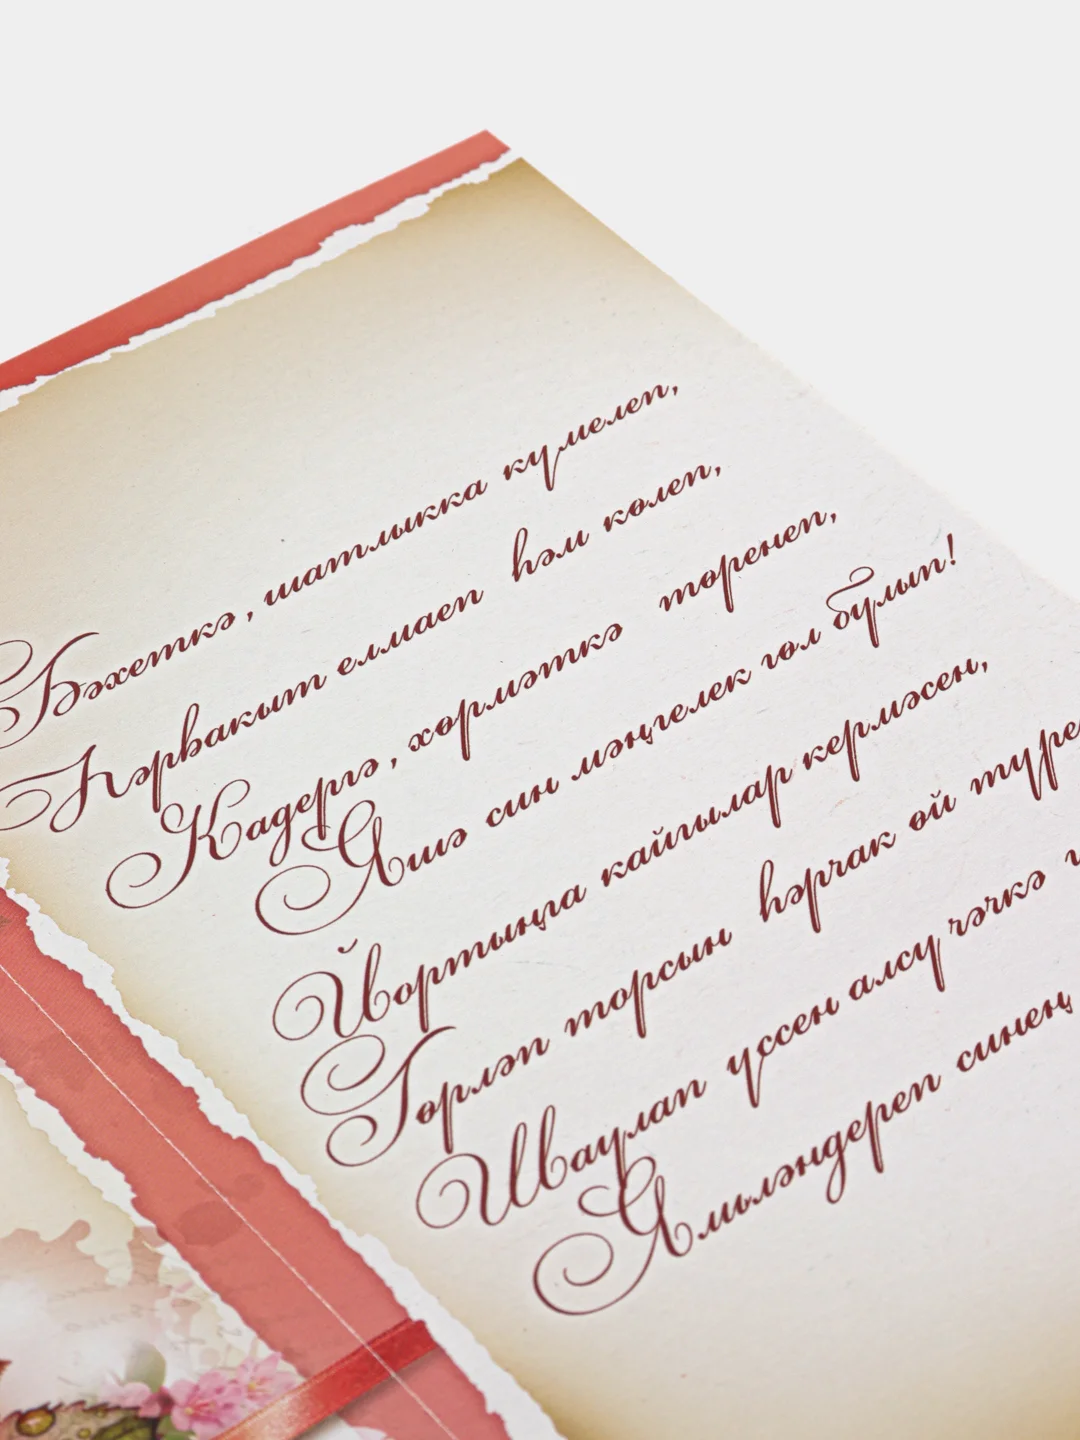 Бәхеткә, шатлыкка күмелеп,
Һәрвакыт елмаеп һәм көлеп,
Кадергә, хөрмәткә төренеп,
Яшә син мәңгелек гөл булып!
Йортыңа кайгылар кермәсен,
Гөрләп торсын һәрчак өй түре
Шаулап үссен алсу чәчкә
Ямьләндереп синең